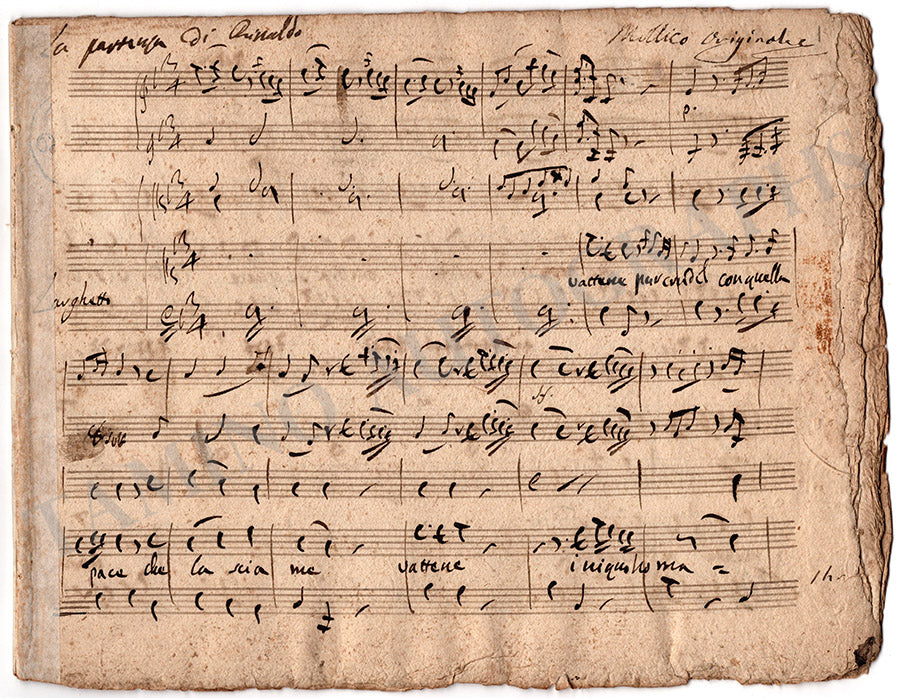 la partenza di Rinaldo
Millico Originale
vattene pur crudel con quella
Larghetto
pace che la scia me vattene iniquo ho ma =
TAMINO AUTOGRAPHS